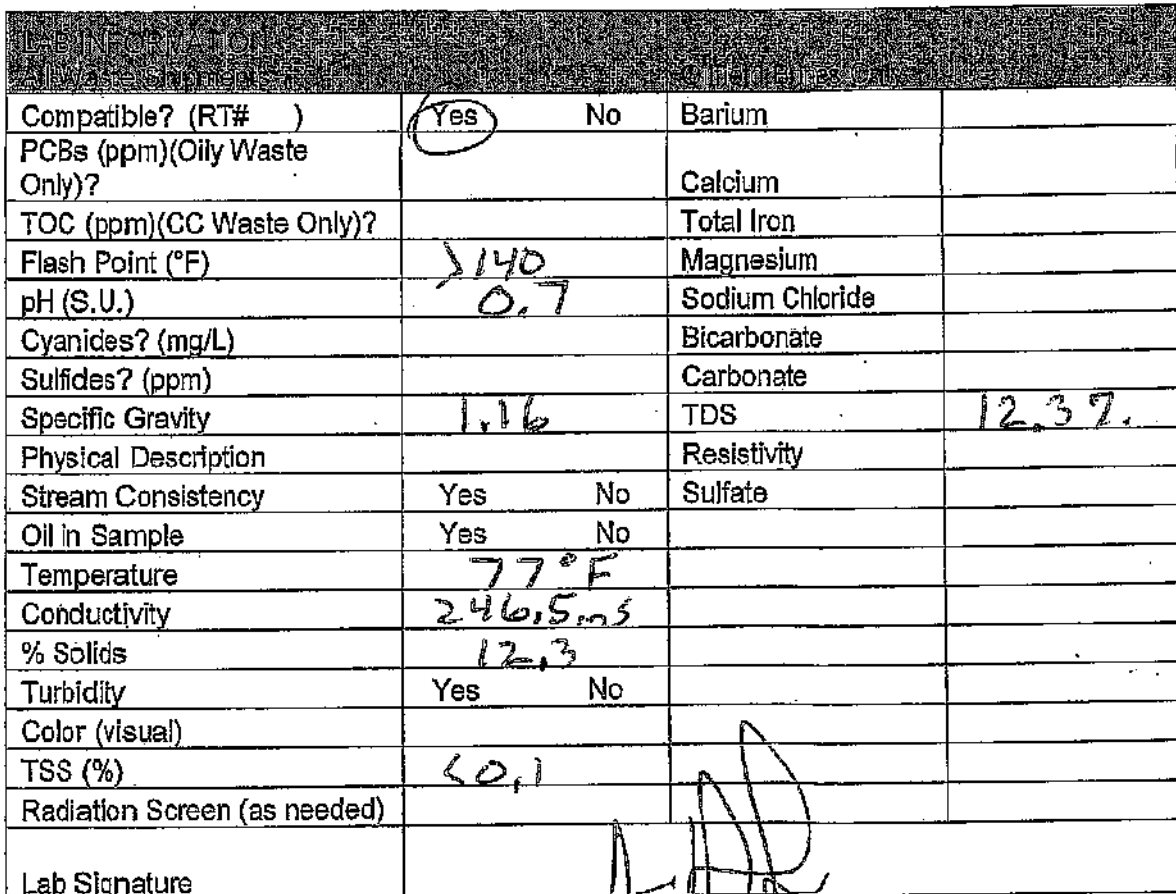 LAB INFORMATION
All Waste Shipments
Compatible? (RT# ) Yes No Barium
PCBs (ppm)(Oily Waste
Only)? Calcium
TOC (ppm)(CC Waste Only)? Total Iron
Flash Point (°F) >140 Magnesium
pH (S.U.) 0.7 Sodium Chloride
Cyanides? (mg/L) Bicarbonate
Sulfides? (ppm) Carbonate
Specific Gravity 1.16 TDS 12.3%
Physical Description Resistivity
Stream Consistency Yes No Sulfate
Oil in Sample Yes No
Temperature 77°F
Conductivity 246.5 ms
% Solids 12.3
Turbidity Yes No
Color (visual)
TSS (%) <0.1
Radiation Screen (as needed)
Lab Signature